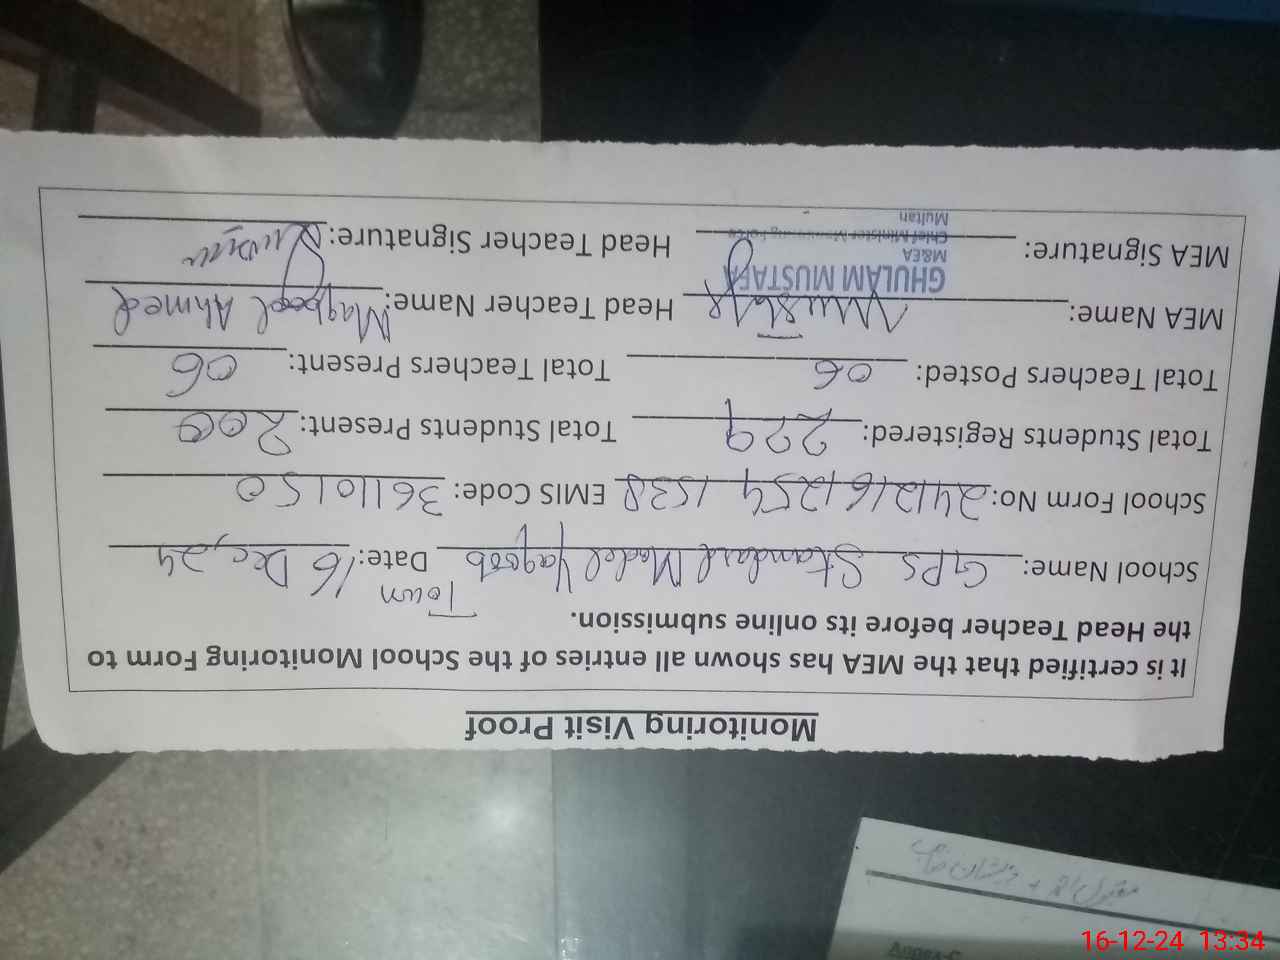 Monitoring Visit Proof
It is certified that the MEA has shown all entries of the School Monitoring Form to
the Head Teacher before its online submission.
School Name: GPS Standard Model Yaqoob Town Date: 16 Dec, 24
School Form No: 241216 1254 1538 EMIS Code: 36110150
Total Students Registered: 229 Total Students Present: 200
Total Teachers Posted: 06 Total Teachers Present: 06
MEA Name: Mustafa Head Teacher Name: Maqbool Ahmed
GHULAM MUSTAFA
M&EA
MEA Signature: Head Teacher Signature:
Chief Minister Monitoring Force
Multan
Annex-C
16-12-24 13:34